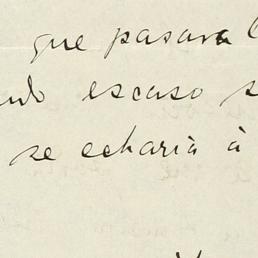 que pasara
escaso
se echaría à